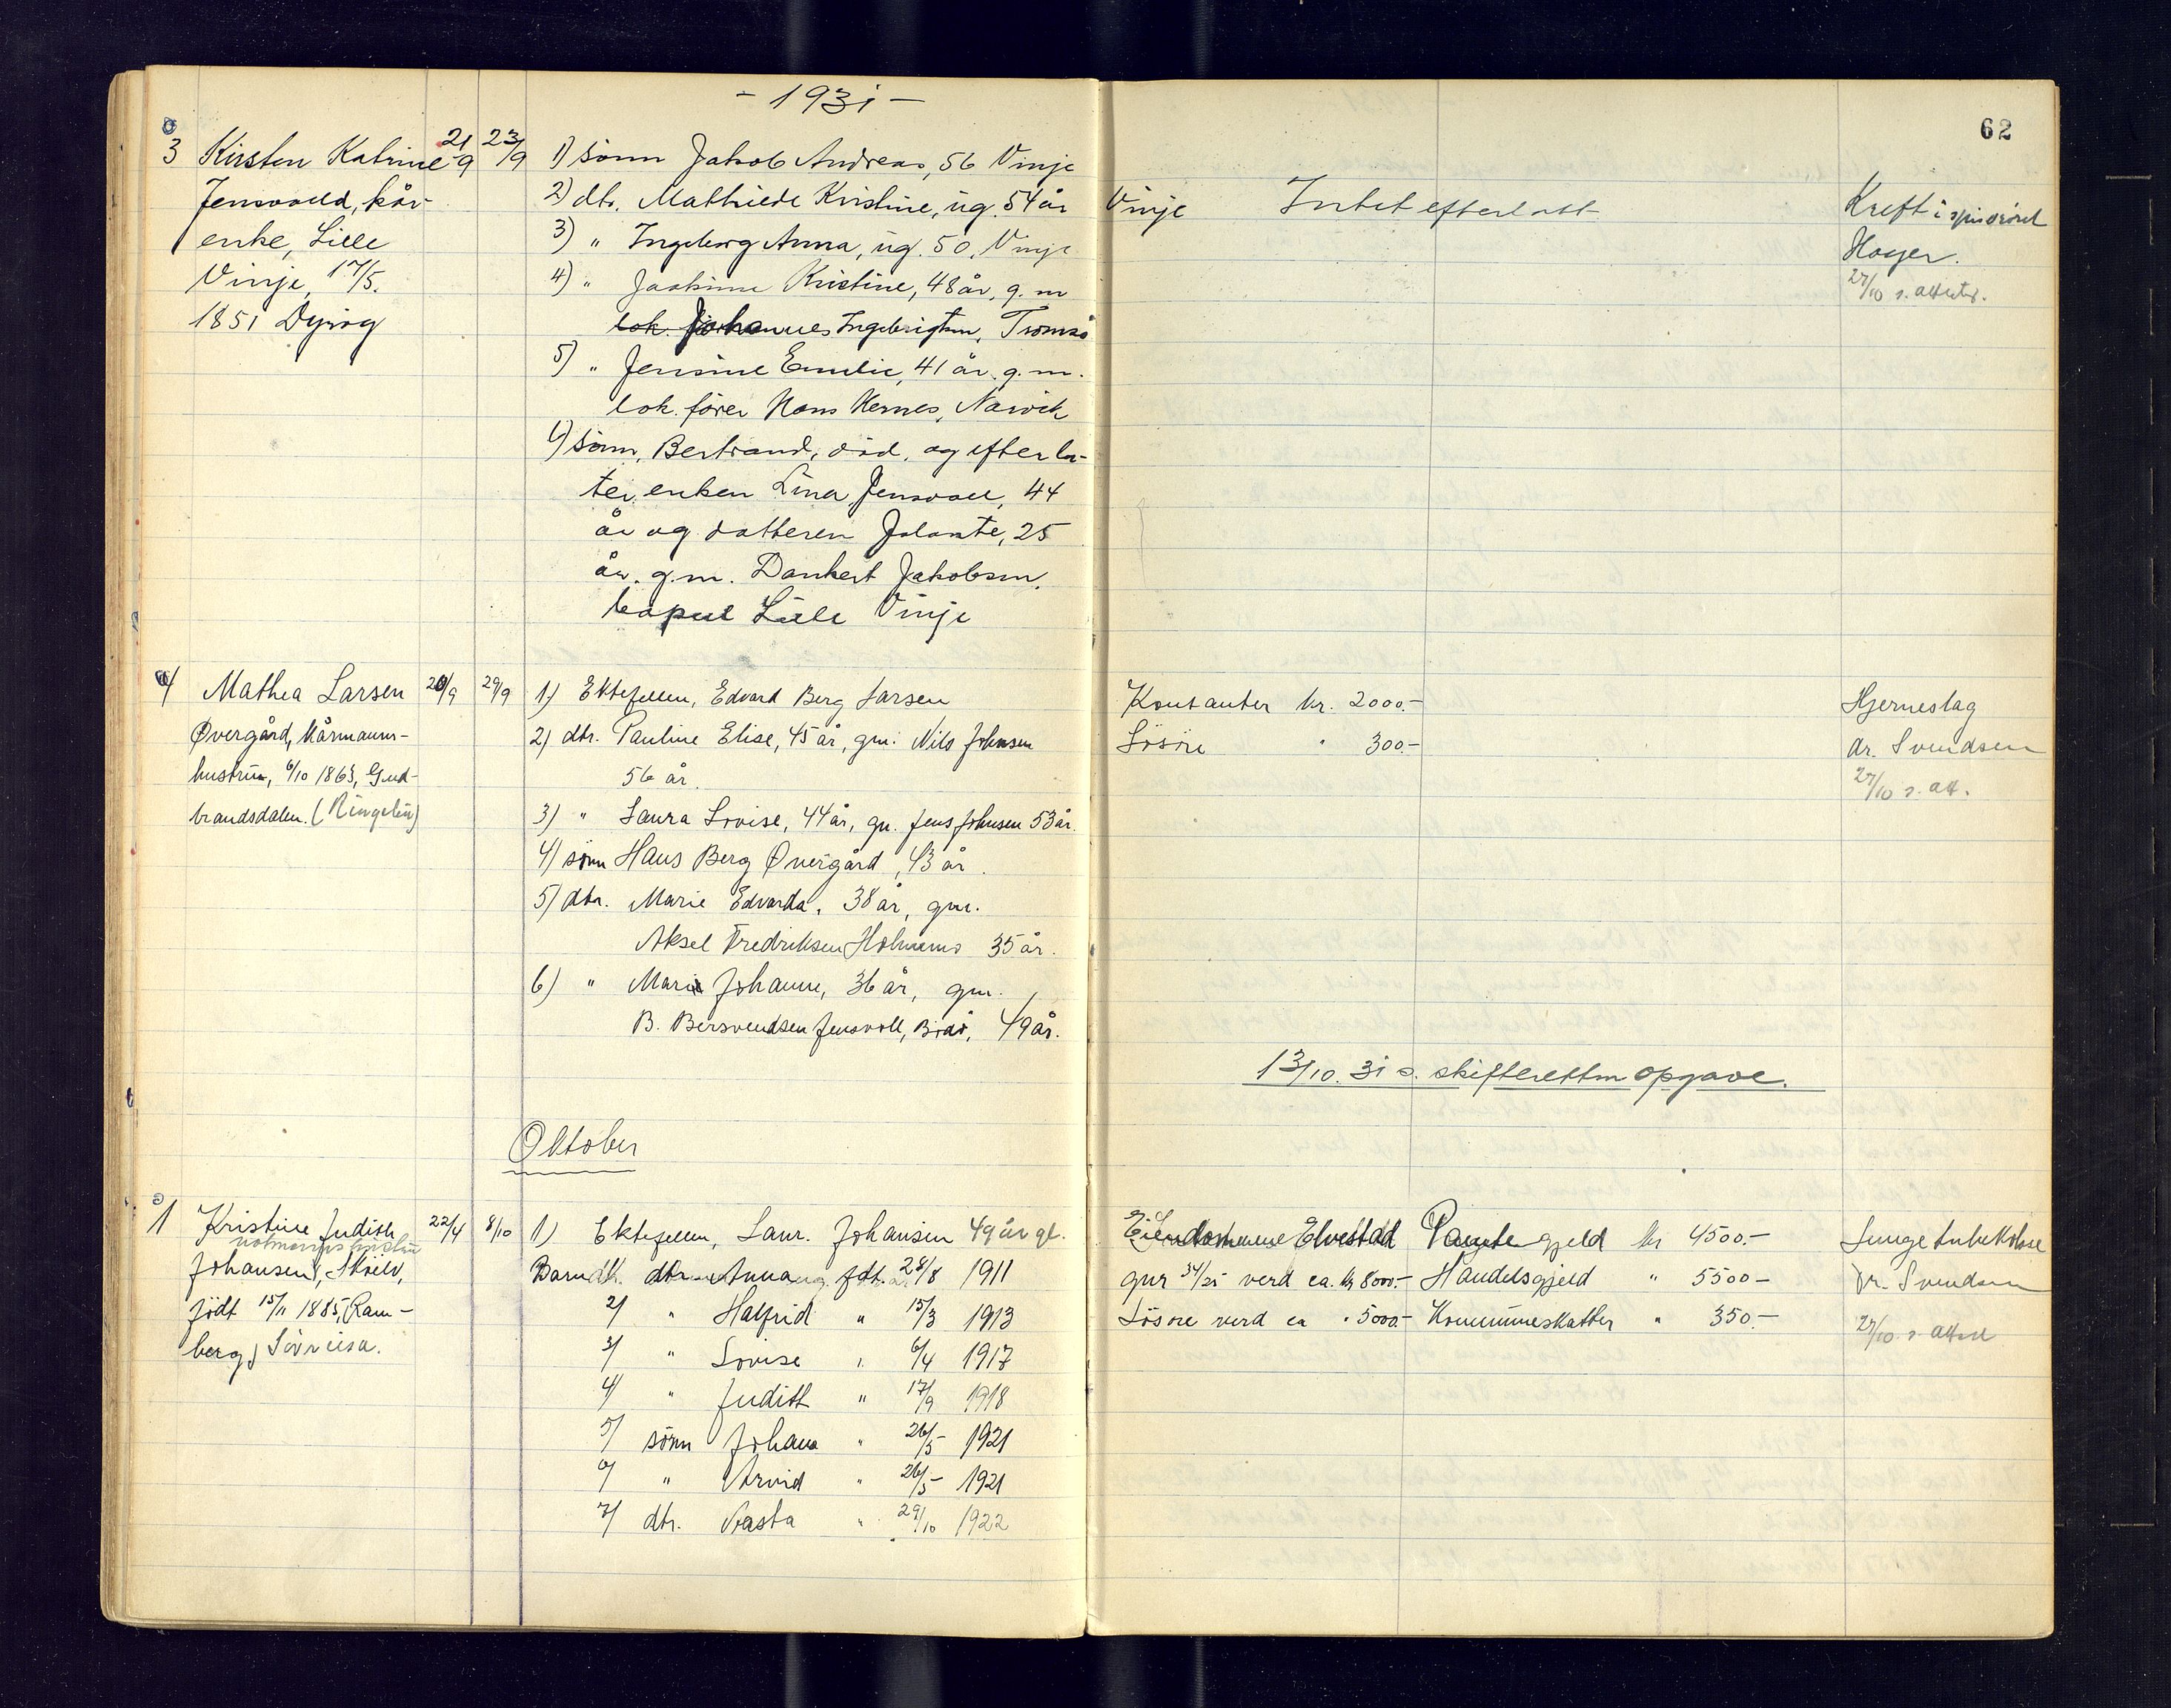 - 1931 -
62
3 Kirsten Katrine 21/9 23/9
Jensvold, kår-
enke, Lille
Vinje, 17/5.
1851 Dyrøy
1) sönn Jakob Andreas, 56 Vinje
2) dtr. Mathilde Kristine, ug. 54 år Vinje
3) " Ingeborg Anna, ug. 50, Vinje
4) " Joakime Kristine, 48 år, g. m
lok. Johannes Ingebrigtsen, Tromsö
5) " Jensine Emilie, 41 år. g. m.
lok. förer Hans Hernes, Narvik
6) sönn, Bertrand, död, og efterla-
ter enken Lina Jensvoll, 44
år og datteren Jolante, 25
år. g.m. Dankert Jakobsen.
bopæl Lille Vinje
Intet efterlatt
Kreft i spiserøret
Hoyer.
27/10 s. attest.
4 Mathea Larsen 20/9 29/9
Øvergård, kårmanns-
hustru, 6/10 1863, Gud-
brandsdalen. (Ringebu)
1) Ektefellen, Edvard Berg Larsen
2) dtr. Pauline Elise, 45 år, gm. Nils Johnsen
56 år.
3) " Laura Lovise, 44 år, gm. Jens Johnsen 53 år.
4) sönn Hans Berg Øvergård, 43 år.
5) dtr. Marie Edvarda, 38 år, gm.
Aksel Fredriksen Holmenes 35 år.
6) " Marie Johanne, 36 år, gm.
B. Bersvendsen Jensvoll, 49 år.
Kontanter kr. 2000.-
Lösöre " 300.-
Hjerneslag
dr. Svendsen
27/10 s. att.
13/10. 31 s. skifteretten opgave.
Oktober
1 Kristine Judith 22/4 8/10
notmannshustru
Johansen,
födt 15/11 1885, Ram-
berg, Sörreisa.
1) Ektefellen, Laur. Johansen 49 år gl.
Barn dtr. Anna ug. fdt. 28/8 1911
2/ " Halfrid " 15/3 1913
3/ " Lovise " 6/4 1917
4/ " Judith " 17/9 1918
5/ sönn Johan " 26/5 1921
6/ " Arvid " 26/5 1921
7/ dtr. Nasta " 29/10 1922
Eiendommen Elvestad
gnr 34/25 verd ca. kr 8000.-
Lösöre verd ca " 5000.-
Pantegjeld kr 4500.-
Handelsgjeld " 5500-
Kommuneskatter " 350.-
Lungetuberkulose
Dr. Svendsen
27/10 s. attest